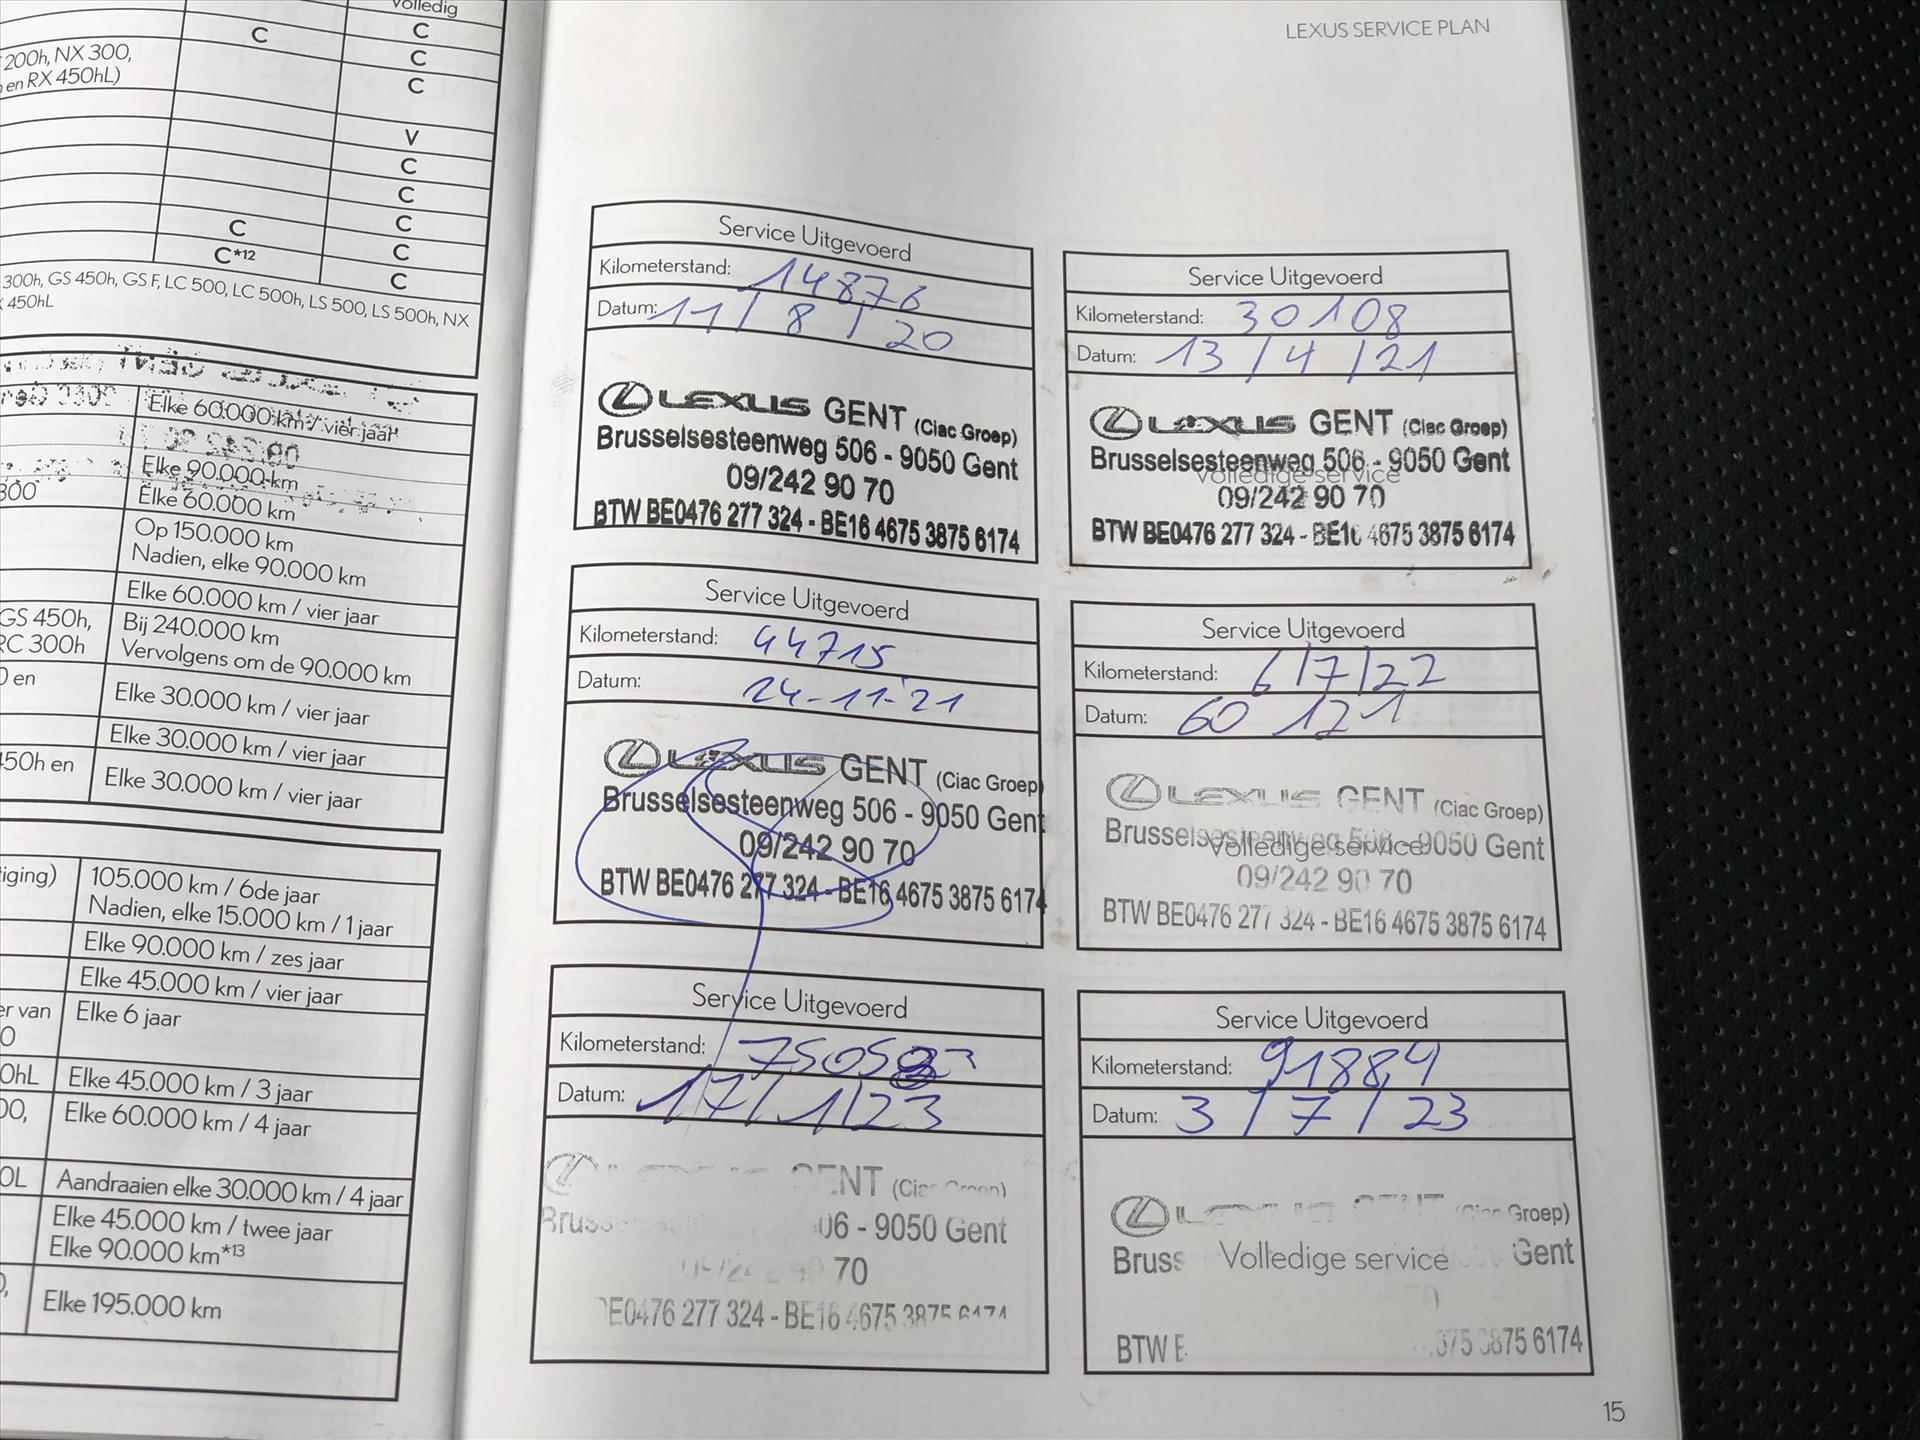 Volledig
C
C
200h, NX 300,
en RX 450hL)
C
C
V
C
C
C
C
C
C*12
C
300h, GS 450h, GS F, LC 500, LC 500h, LS 500, LS 500h, NX
450hL
Elke 60.000 km / vier jaar
Elke 90.000 km
300
Elke 60.000 km
Op 150.000 km
Nadien, elke 90.000 km
Elke 60.000 km / vier jaar
GS 450h,
RC 300h
Bij 240.000 km
Vervolgens om de 90.000 km
en
Elke 30.000 km / vier jaar
Elke 30.000 km / vier jaar
450h en
Elke 30.000 km / vier jaar
105.000 km / 6de jaar
Nadien, elke 15.000 km / 1 jaar
Elke 90.000 km / zes jaar
Elke 45.000 km / vier jaar
van
Elke 6 jaar
Elke 45.000 km / 3 jaar
Elke 60.000 km / 4 jaar
Aandraaien elke 30.000 km / 4 jaar
Elke 45.000 km / twee jaar
Elke 90.000 km*13
Elke 195.000 km
LEXUS SERVICE PLAN
Service Uitgevoerd
Kilometerstand: 14876
Datum: 11/8/20
LEXUS GENT (Ciac Groep)
Brusselsesteenweg 506 - 9050 Gent
09/242 90 70
BTW BE0476 277 324 - BE16 4675 3875 6174
Service Uitgevoerd
Kilometerstand: 30108
Datum: 13/4/21
LEXUS GENT (Ciac Groep)
Brusselsesteenweg 506 - 9050 Gent
Volledige service
09/242 90 70
BTW BE0476 277 324 - BE16 4675 3875 6174
Service Uitgevoerd
Kilometerstand: 44715
Datum: 24-11-'21
LEXUS GENT (Ciac Groep)
Brusselsesteenweg 506 - 9050 Gent
09/242 90 70
BTW BE0476 277 324 - BE16 4675 3875 6174
Service Uitgevoerd
Kilometerstand: 6/7/22
Datum: 60 121
LEXUS GENT (Ciac Groep)
Brusselsesteenweg 506 - 9050 Gent
Volledige service
09/242 90 70
BTW BE0476 277 324 - BE16 4675 3875 6174
Service Uitgevoerd
Kilometerstand:
Datum: 17/1/23
GENT
9050 Gent
70
BE0476 277 324 - BE16 4675 3875 6174
Service Uitgevoerd
Kilometerstand: 91884
Datum: 3/7/23
LEXUS GENT (Ciac Groep)
Volledige service
Gent
BTW
3875 6174
15